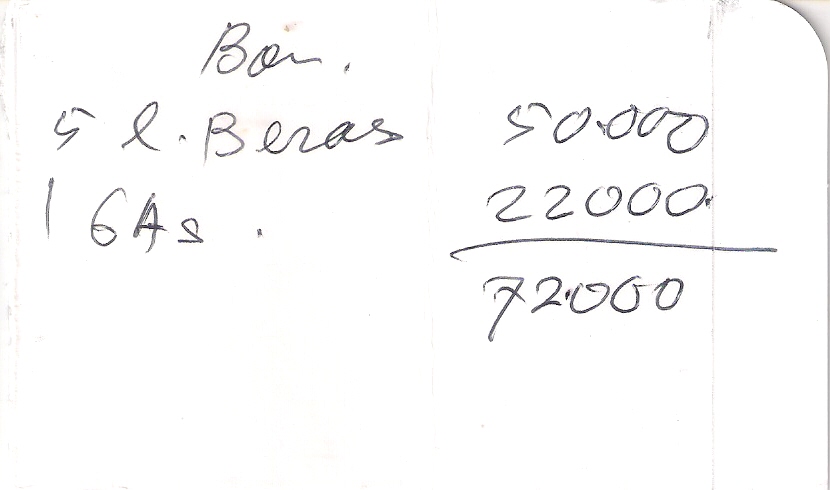 Bon.
5 l. Beras 50.000
1 GAs. 22000.
72.000